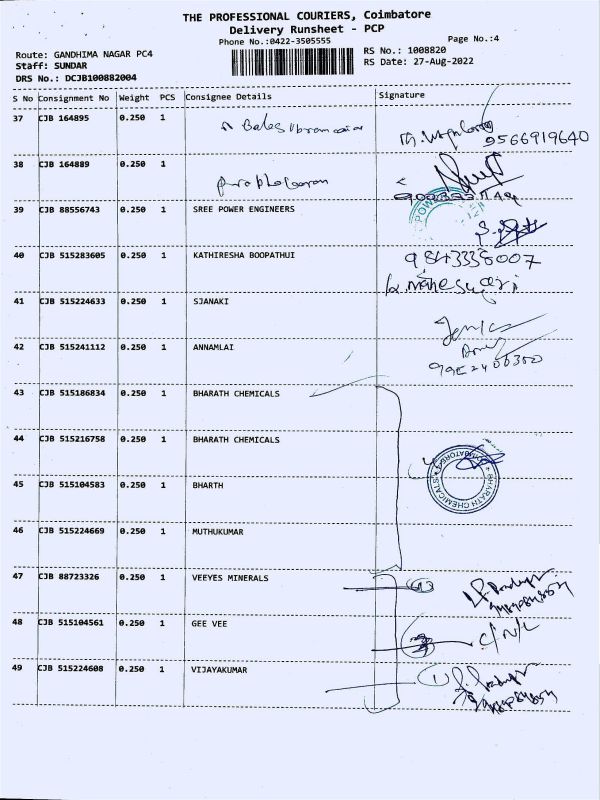 THE PROFESSIONAL COURIERS, Coimbatore
Delivery Runsheet - PCP
Phone No.:0422-3505555 Page No.:4
Route: GANDHIMA NAGAR PC4 RS No.: 1008820
Staff: SUNDAR RS Date: 27-Aug-2022
DRS No.: DCJB100882004
S No Consignment No Weight PCS Consignee Details Signature
37 CJB 164895 0.250 1
9566919640
38 CJB 164889 0.250 1
39 CJB 88556743 0.250 1 SREE POWER ENGINEERS
40 CJB 515283605 0.250 1 KATHIRESHA BOOPATHUI 9843338007
41 CJB 515224633 0.250 1 SJANAKI
42 CJB 515241112 0.250 1 ANNAMLAI
43 CJB 515186834 0.250 1 BHARATH CHEMICALS
44 CJB 515216758 0.250 1 BHARATH CHEMICALS
BHARATH CHEMICALS
45 CJB 515104583 0.250 1 BHARTH
46 CJB 515224669 0.250 1 MUTHUKUMAR
47 CJB 88723326 0.250 1 VEEYES MINERALS
48 CJB 515104561 0.250 1 GEE VEE C/N/L
49 CJB 515224608 0.250 1 VIJAYAKUMAR